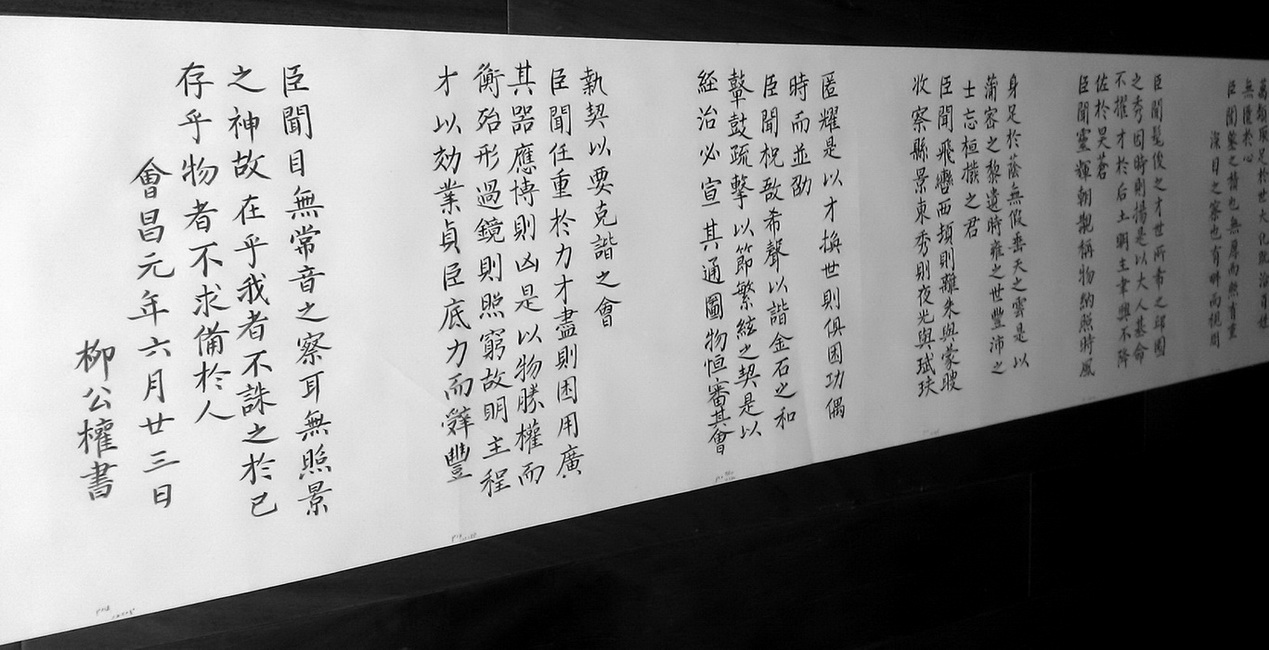 臣聞鑒之積也無厚而照有重
淵目之察也有畔而視周
臣聞髦俊之才世所希乏邱園
之秀因時則揚是以大人基命
不擢才於后土明主聿興不降
佐於昊蒼
臣聞靈輝朝覯稱物納照時風
身足於蔭無假垂天之雲是以
蒲密之黎遺時雍之世豐沛之
士忘桓撥之君
臣聞飛轡西頓則離朱與蒙瞍
收察縣景東秀則夜光與珷玞
匿耀是以才換世則俱困功偶
時而並劭
臣聞柷敔希聲以諧金石之和
鼙鼓疏擊以節繁絃之契是以
経治必宣其通圖物恒審其會
執契以要克諧之會
臣聞任重於力才盡則困用廣
其器應博則凶是以物勝權而
衡殆形過鏡則照窮故明主程
才以効業貞臣底力而辭豐
臣聞目無常音之察耳無照景
之神故在乎我者不誅之於己
存乎物者不求備於人
會昌元年六月廿三日
柳公權書